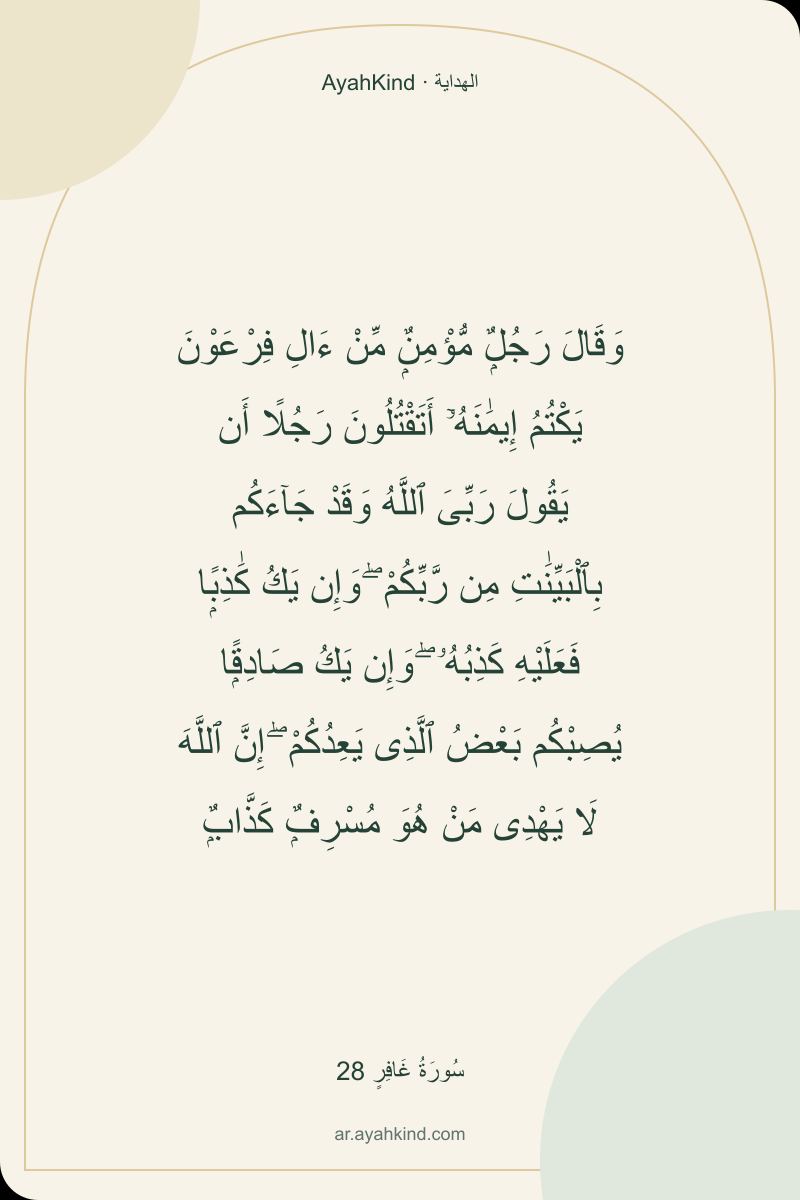 AyahKind · الهداية
وَقَالَ رَجُلٌۭ مُّؤْمِنٌۭ مِّنْ ءَالِ فِرْعَوْنَ
يَكْتُمُ إِيمَٰنَهُۥٓ أَتَقْتُلُونَ رَجُلًا أَن
يَقُولَ رَبِّىَ ٱللَّهُ وَقَدْ جَآءَكُم
بِٱلْبَيِّنَٰتِ مِن رَّبِّكُمْ ۖ وَإِن يَكُ كَٰذِبًۭا
فَعَلَيْهِ كَذِبُهُۥ ۖ وَإِن يَكُ صَادِقًۭا
يُصِبْكُم بَعْضُ ٱلَّذِى يَعِدُكُمْ ۖ إِنَّ ٱللَّهَ
لَا يَهْدِى مَنْ هُوَ مُسْرِفٌۭ كَذَّابٌۭ
سُورَةُ غَافِرٍ 28
ar.ayahkind.com